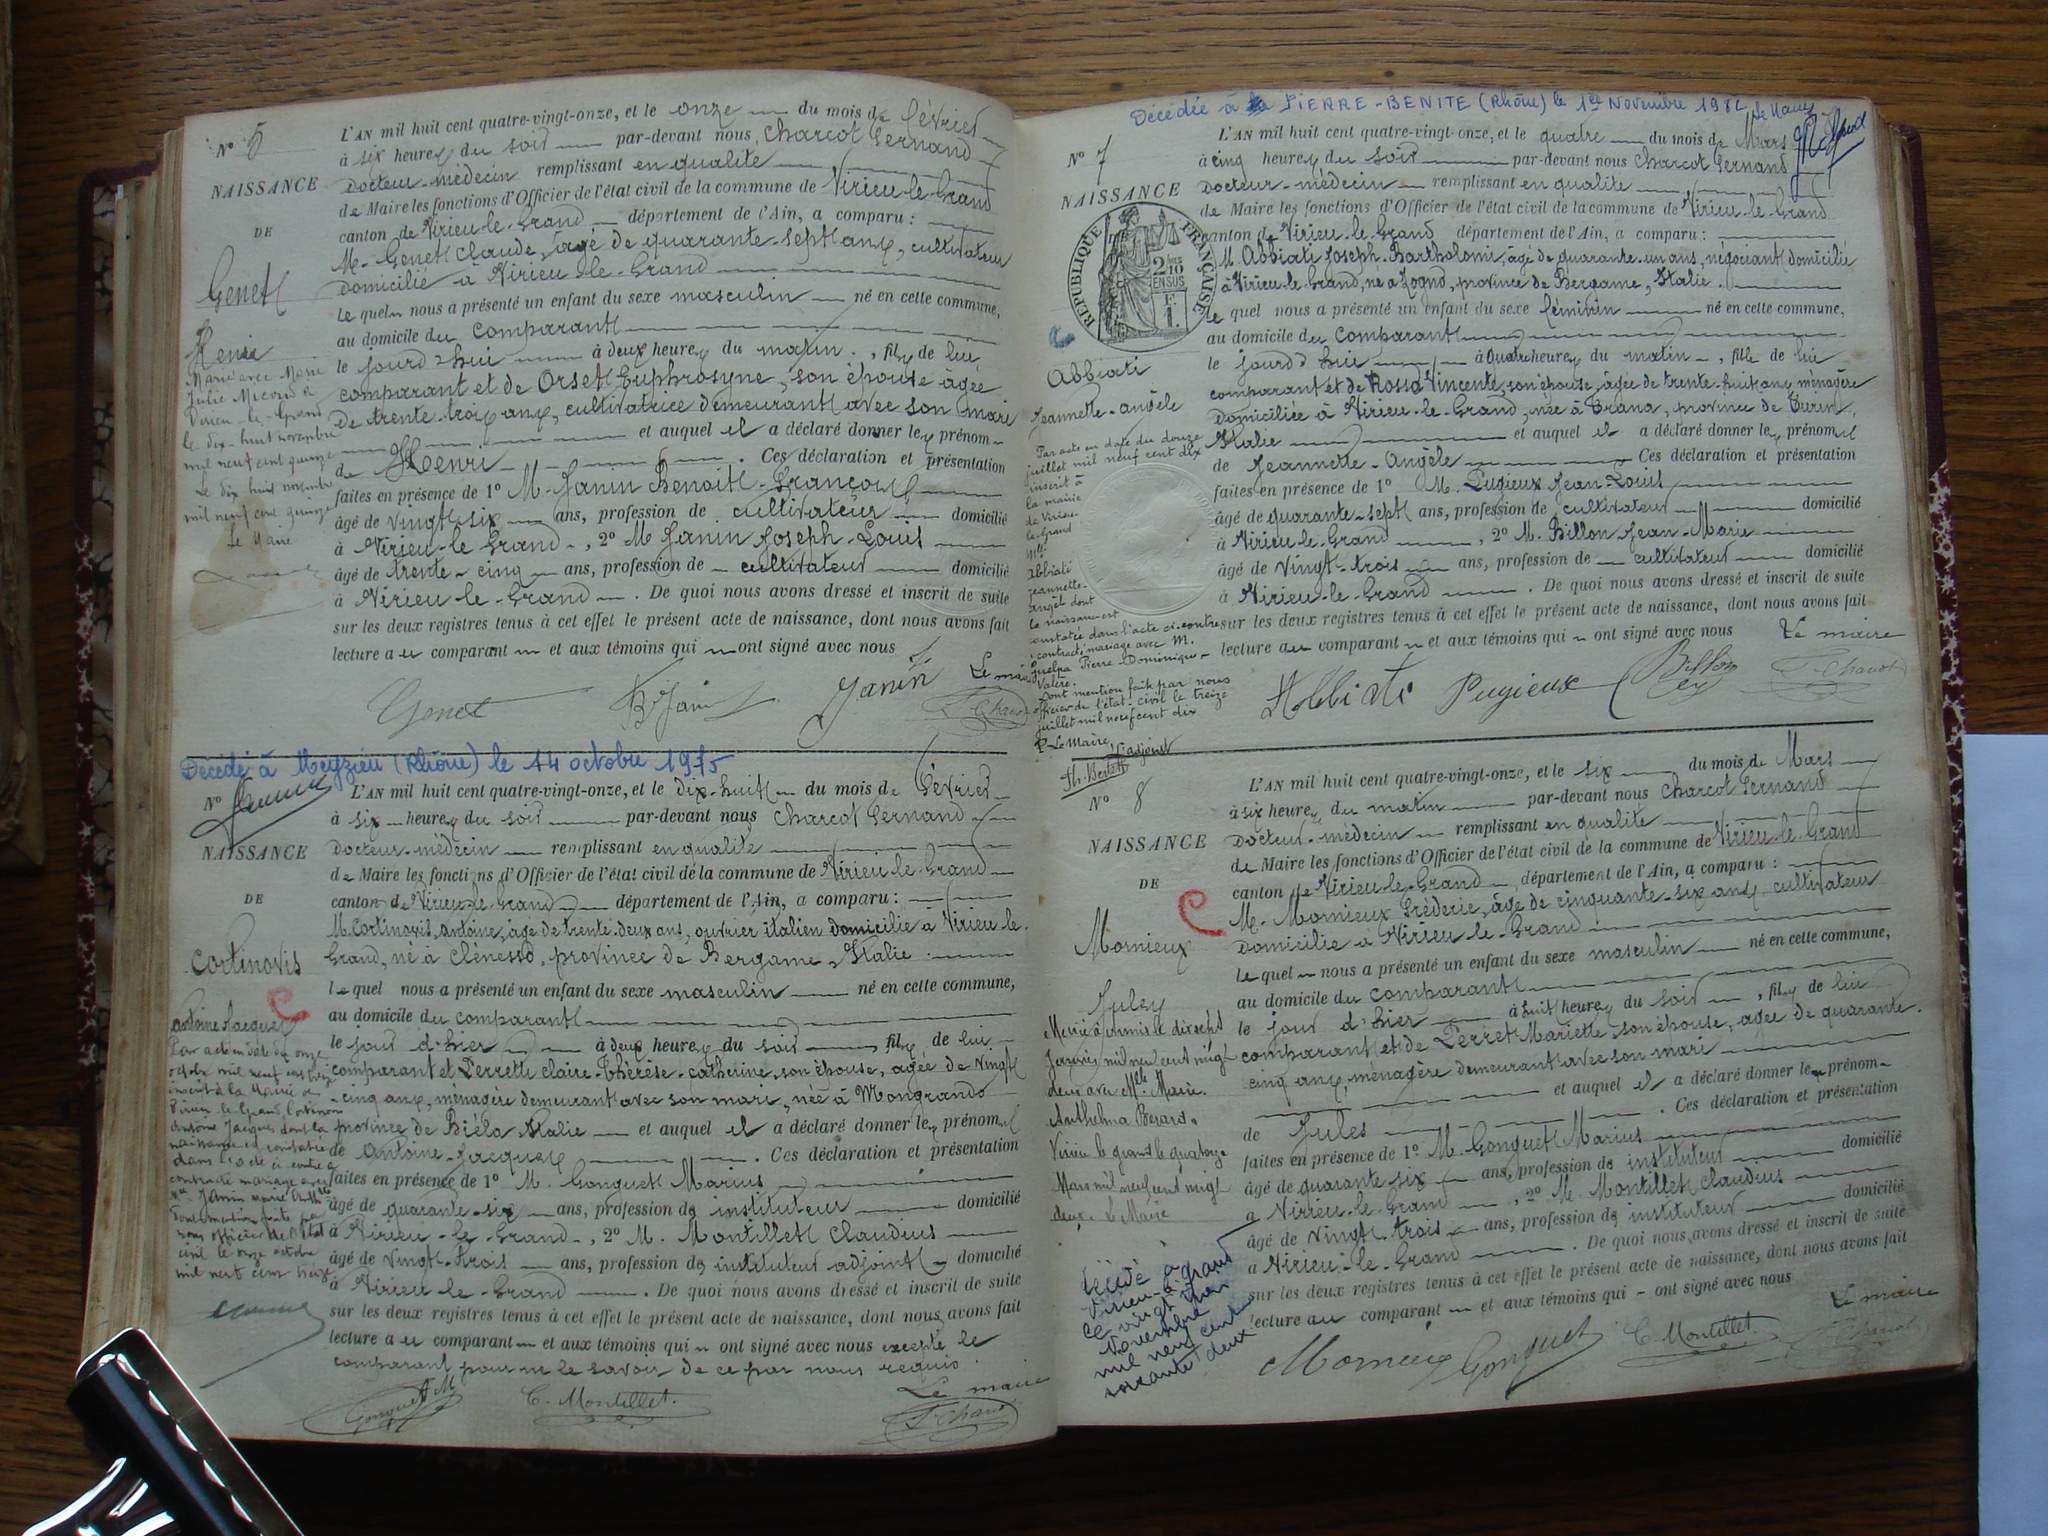 N° 5
NAISSANCE
DE
Genet
Henri
Marié avec Marie
Julie Micoud à
Virieu-le-Grand
le dix-huit novembre
mil neuf cent quinze
Le dix huit novembre
mil neuf cent quinze
Le Maire
L'AN mil huit cent quatre-vingt-onze, et le onze du mois de février
à six heures du soir par-devant nous Charcot Fernand
Docteur-médecin remplissant en qualité
de Maire les fonctions d'Officier de l'état civil de la commune de Virieu-le-Grand
canton de Virieu-le-Grand département de l'Ain, a comparu :
M. Genet Claude, âgé de quarante-sept ans, cultivateur
domicilié à Virieu-le-Grand
Lequel nous a présenté un enfant du sexe masculin né en cette commune,
au domicile du comparant
le jourd'hui à deux heures du matin, fils de lui
comparant et de Orset Euphrosyne, son épouse âgée
de trente-trois ans, cultivatrice demeurant avec son mari
et auquel il a déclaré donner les prénom
de Henri . Ces déclaration et présentation
faites en présence de 1° M. Janin Benoit-François
âgé de vingt-six ans, profession de cultivateur domicilié
à Virieu-le-Grand, 2° M Janin Joseph-Louis
âgé de trente-cinq ans, profession de cultivateur domicilié
à Virieu-le-Grand . De quoi nous avons dressé et inscrit de suite
sur les deux registres tenus à cet effet le présent acte de naissance, dont nous avons fait
lecture au comparant et aux témoins qui ont signé avec nous
Le maire
Genet B. Janin Janin F. Charcot
Décédé à Meyzieu (Rhône) le 14 octobre 1975
N°
NAISSANCE
DE
Cortinovis
Antoine Jacques
Par acte en date du onze
octobre mil neuf cent treize
inscrit à la Mairie de
Virieu le Grand, Cortinovis
Antoine Jacques dont la
naissance est constatée
dans l'acte ci-contre a
contracté mariage avec
Mlle Janin Marie
Dont mention faite par
nous officier de l'Etat
civil le onze octobre
mil neuf cent treize
L'AN mil huit cent quatre-vingt-onze, et le dix-huit du mois de février
à six heures du soir par-devant nous Charcot Fernand
Docteur-médecin remplissant en qualité
de Maire les fonctions d'Officier de l'état civil de la commune de Virieu-le-Grand
canton de Virieu-le-Grand département de l'Ain, a comparu :
M. Cortinovis, Antoine, âgé de trente-deux ans, ouvrier italien domicilié à Virieu-le-
Grand, né à Clénesso, province de Bergame, Italie
lequel nous a présenté un enfant du sexe masculin né en cette commune,
au domicile du comparant
le jour d'hier à deux heures du soir, fils de lui
comparant et Perrette Claire-Thérèse-Catherine, son épouse, âgée de vingt
-cinq ans, ménagère demeurant avec son mari, née à Mongrando
province de Biéla, Italie et auquel il a déclaré donner les prénoms
de Antoine-Jacques . Ces déclaration et présentation
faites en présence de 1° M. Gonguet Marius
âgé de quarante-six ans, profession de instituteur domicilié
à Virieu-le-Grand, 2° M. Montillet Claudius
âgé de vingt-trois ans, profession de instituteur adjoint domicilié
à Virieu-le-Grand . De quoi nous avons dressé et inscrit de suite
sur les deux registres tenus à cet effet le présent acte de naissance, dont nous avons fait
lecture au comparant et aux témoins qui ont signé avec nous excepté le
comparant pour ne le savoir de ce par nous requis.
Le maire
Gonguet C. Montillet. F. Charcot
Décédée à PIERRE-BENITE (Rhône) le 1er Novembre 1982 le Maire
N° 7
NAISSANCE
RÉPUBLIQUE FRANÇAISE
2/10 EN SUS
Abbiati
Jeannette-Angèle
Par acte en date du douze
juillet mil neuf cent dix
inscrit à
la mairie
de Virieu
le-Grand
Mlle
Abbiati
Jeannette-
Angèle dont
la naissance est
constatée dans l'acte ci-contre
a contracté mariage avec M.
Guelpa Pierre-Dominique-
Valère.
Dont mention faite par nous
officier de l'état-civil le treize
juillet mil neuf cent dix
P. Le Maire, l'adjoint
L'AN mil huit cent quatre-vingt-onze, et le quatre du mois de Mars
à cinq heures du soir par-devant nous Charcot Fernand
Docteur-médecin remplissant en qualité
de Maire les fonctions d'Officier de l'état civil de la commune de Virieu-le-Grand
canton de Virieu-le-Grand département de l'Ain, a comparu :
M. Abbiati Joseph-Bartholomi, âgé de quarante-un ans, négociant domicilié
à Virieu-le-Grand, né à Zogno, province de Bergame, Italie.
lequel nous a présenté un enfant du sexe féminin né en cette commune,
au domicile du comparant
le jourd'hui à quatre heures du matin, fille de lui
comparant et de Rossa Vincente, son épouse, âgée de trente-huit ans, ménagère
domiciliée à Virieu-le-Grand, née à Trana, province de Turin,
Italie et auquel il a déclaré donner les prénoms
de Jeannette-Angèle Ces déclaration et présentation
faites en présence de 1° M. Pugieux Jean-Louis
âgé de quarante-sept ans, profession de cultivateur domicilié
à Virieu-le-Grand, 2° M. Billon Jean-Marie
âgé de vingt-trois ans, profession de cultivateur domicilié
à Virieu-le-Grand . De quoi nous avons dressé et inscrit de suite
sur les deux registres tenus à cet effet le présent acte de naissance, dont nous avons fait
lecture au comparant et aux témoins qui ont signé avec nous Le maire
Abbiati Pugieux Billon F. Charcot
N° 8
NAISSANCE
DE
Mornieux
Jules
Marié à
Janvier mil neuf cent vingt
deux avec Mlle Marie
Anthelma Berard.
Virieu le grand le quatorze
Mars mil neuf cent vingt
deux. Le Maire
Décédé à
Virieu-le-grand
le vingt
Novembre
mil neuf cent
soixante deux
L'AN mil huit cent quatre-vingt-onze, et le six du mois de Mars
à six heures du matin par-devant nous Charcot Fernand
Docteur-médecin remplissant en qualité
de Maire les fonctions d'Officier de l'état civil de la commune de Virieu-le-Grand
canton de Virieu-le-Grand, département de l'Ain, a comparu :
M. Mornieux Fréderic, âgé de cinquante-six ans, cultivateur
domicilié à Virieu-le-Grand
Lequel nous a présenté un enfant du sexe masculin né en cette commune,
au domicile du comparant
le jour d'hier à huit heures du soir, fils de lui
comparant et de Perret Mariette son épouse, agée de quarante.
cinq ans, ménagère demeurant avec son mari
et auquel il a déclaré donner le prénom
de Jules . Ces déclaration et présentation
faites en présence de 1° M. Gonguet Marius
âgé de quarante six ans, profession de instituteur domicilié
à Virieu-le-Grand, 2° M. Montillet Claudius
âgé de vingt-trois ans, profession de instituteur domicilié
à Virieu-le-Grand . De quoi nous avons dressé et inscrit de suite
sur les deux registres tenus à cet effet le présent acte de naissance, dont nous avons fait
lecture au comparant et aux témoins qui ont signé avec nous
Le maire
Mornieux Gonguet C. Montillet. F. Charcot